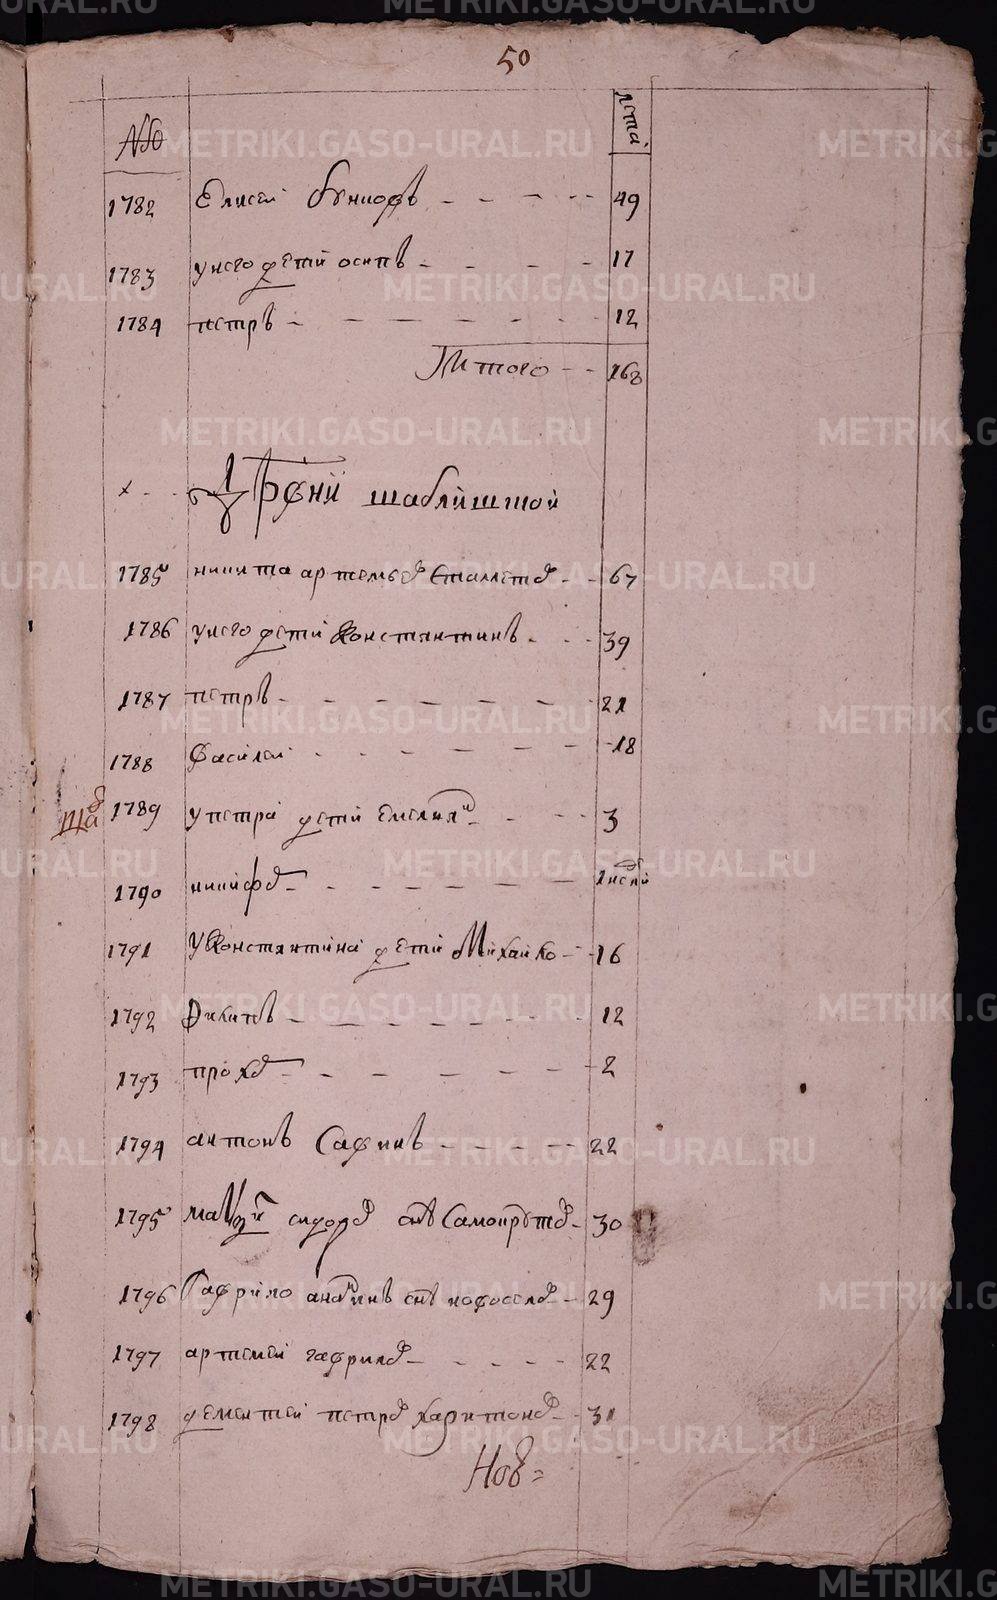 50
№ лета
1782 Елисей 49
1783 у него детей осипъ 17
1784 петръ 12
Итого 168
х Дрвни шаблишшой
1785 никита артемьев 67
1786 у него детей Константинъ 39
1787 петръ 21
1788 василей 18
1789 у петра детей емелиянъ 3
1790 никифор
1791 у Константина детей Михайко 16
1792 Филипъ 12
1793 прохор 2
1794 антонъ Савинъ 22
1795 матфей сидоров снъ 30
1796 Гаврило снъ новоселов 29
1797 артемей гаврилов 22
1798 дементей петров харитонов 31
Нов=
METRIKI.GASO-URAL.RU